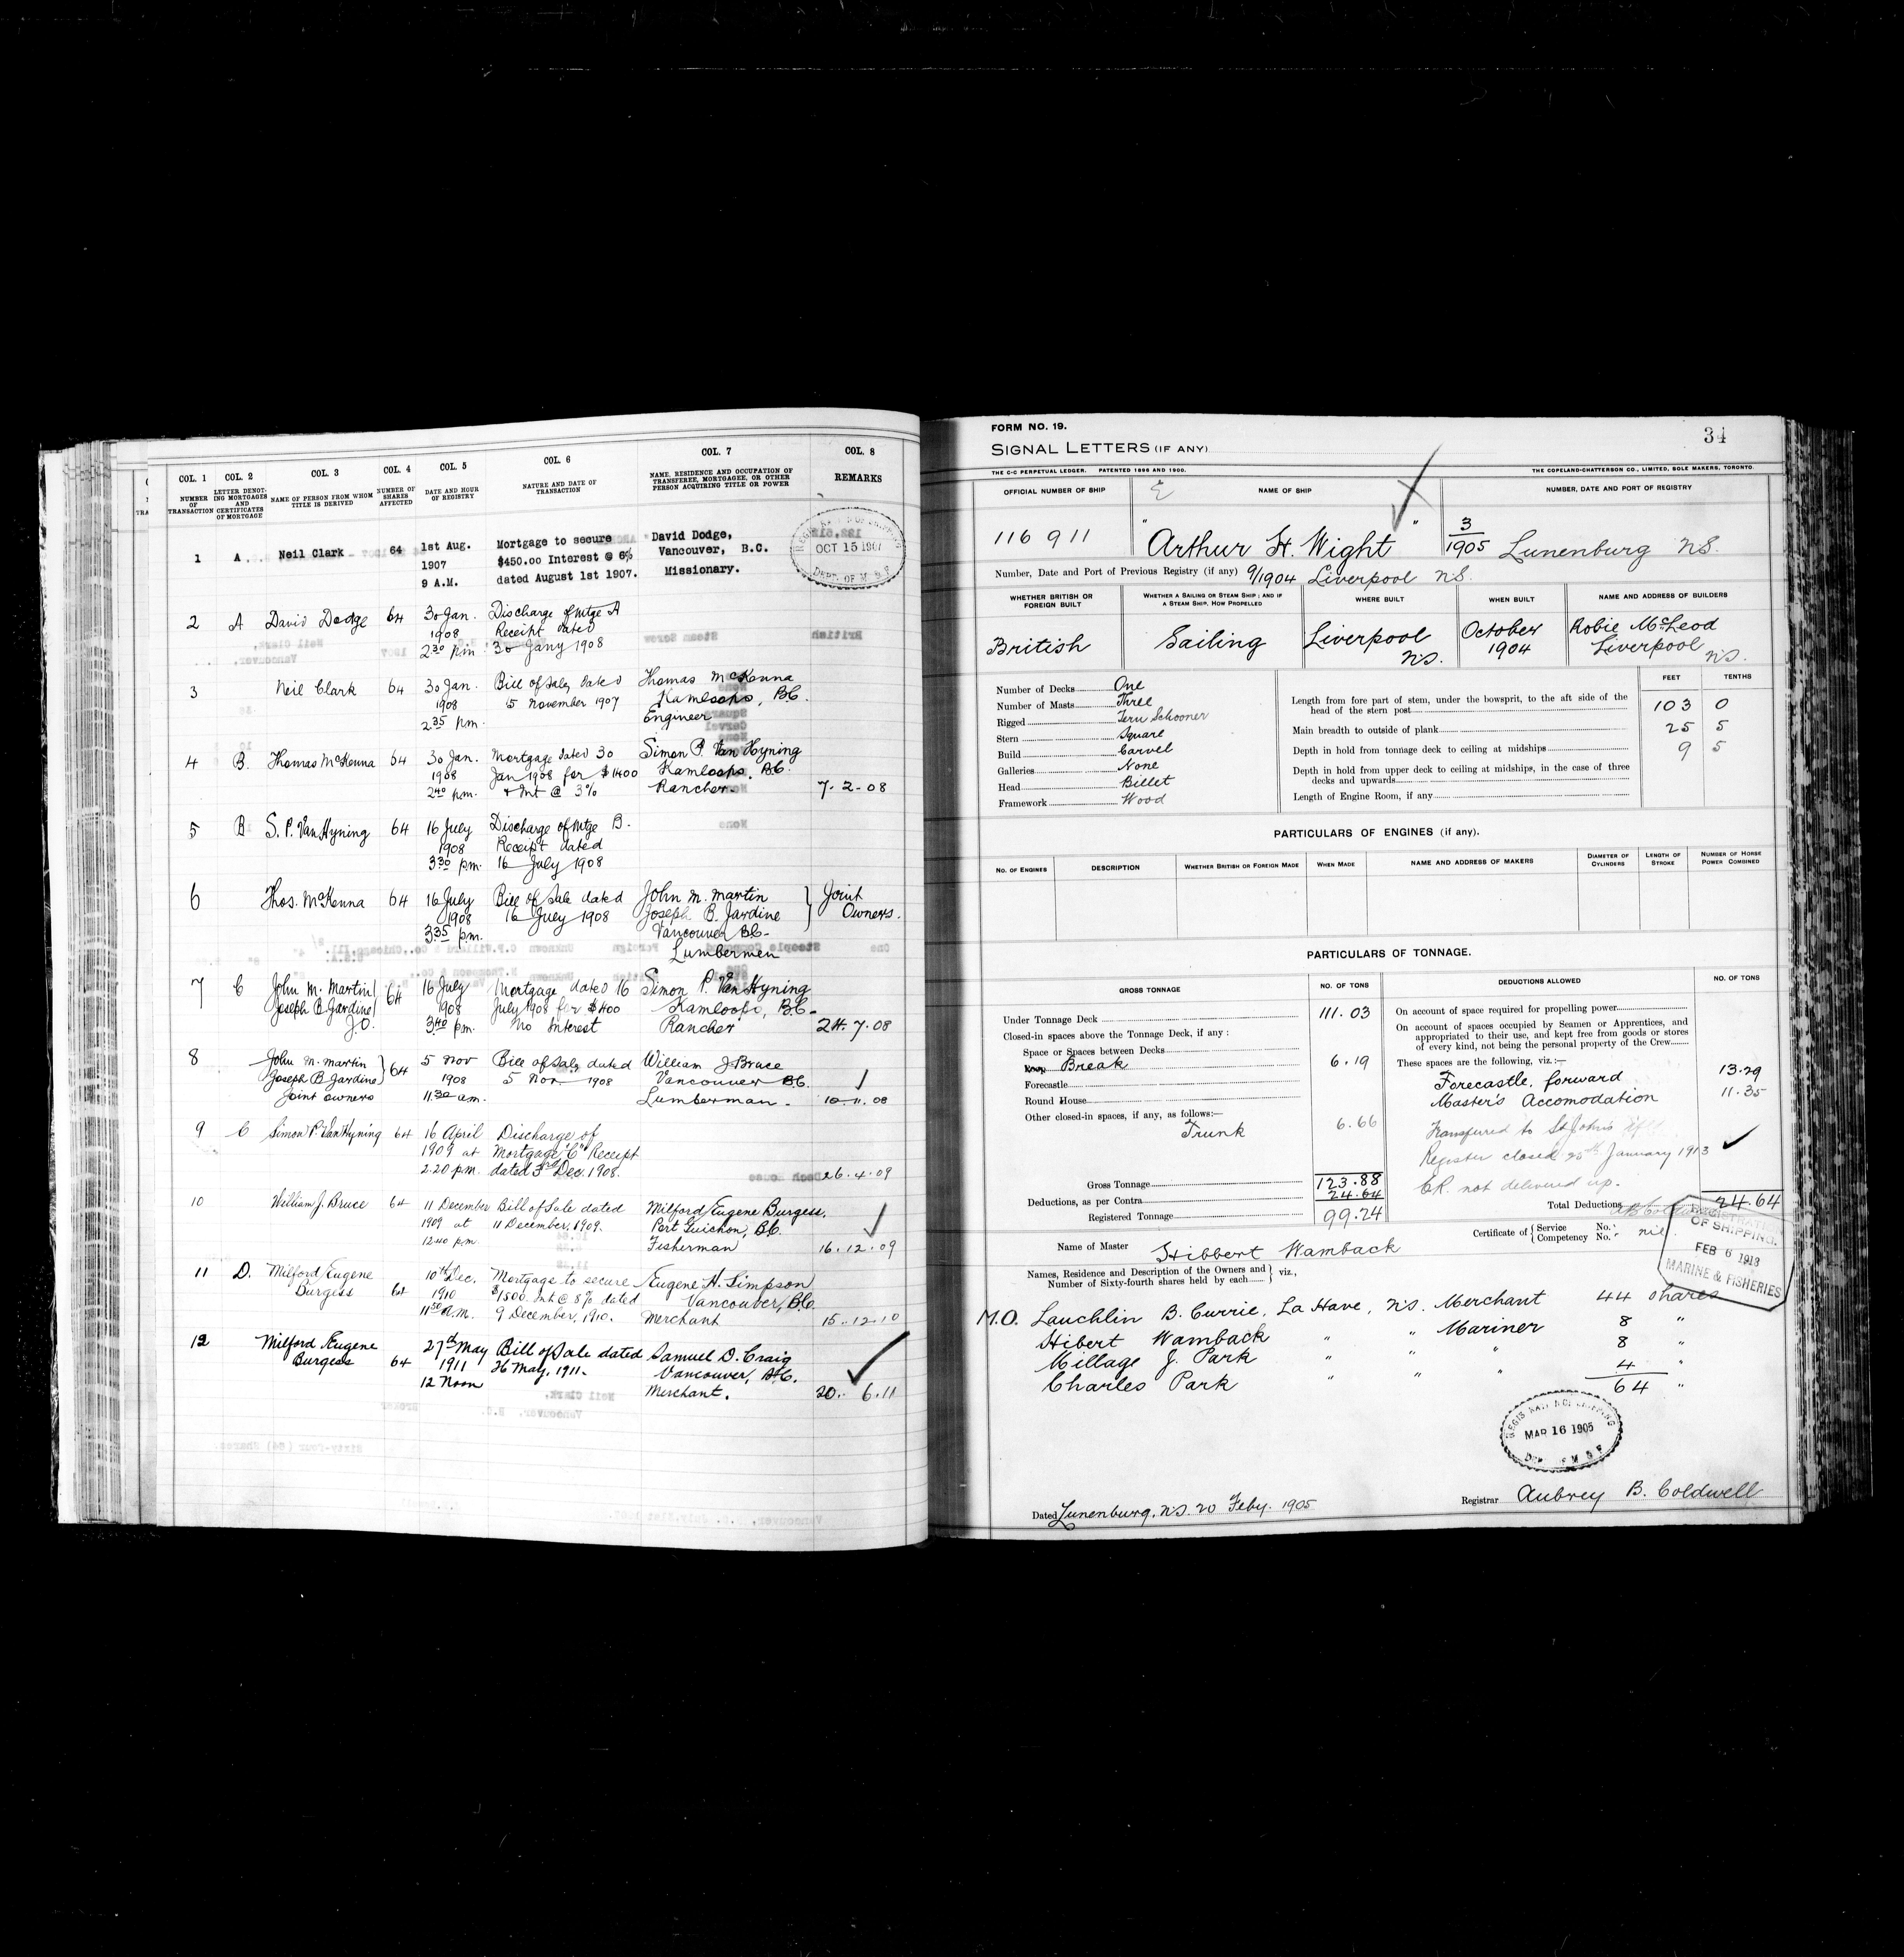 COL. 1 COL. 2 COL. 3 COL. 4 COL. 5 COL. 6 COL. 7 COL. 8
NUMBER OF TRANSACTION
LETTER DENOTING MORTGAGES AND CERTIFICATES OF MORTGAGE
NAME OF PERSON FROM WHOM TITLE IS DERIVED
NUMBER OF SHARES AFFECTED
DATE AND HOUR OF REGISTRY
NATURE AND DATE OF TRANSACTION
NAME, RESIDENCE AND OCCUPATION OF TRANSFEREE, MORTGAGEE, OR OTHER PERSON ACQUIRING TITLE OR POWER
REMARKS
1 A Neil Clark 64 1st Aug. Mortgage to secure David Dodge,
1907 $450.00 Interest @ 6% Vancouver, B.C.
9 A.M. dated August 1st 1907. Missionary.
OCT 15 1907
DEPT. OF M & F
2 A David Dodge 64 30 Jan. Discharge of Mtge A
1908 Receipt dated
2.30 pm. 30 Jany 1908
3 Neil Clark 64 30 Jan. Bill of Sale dated Thomas McKenna
1908 5 November 1907 Kamloops, B.C.
2.35 pm. Engineer
4 B. Thomas McKenna 64 30 Jan. Mortgage dated 30 Simon P. Van Hyning
1908 Jan 1908 for $1400 Kamloops, B.C.
2.40 pm. + Int @ 3% Rancher 7-2-08
5 B S. P. Van Hyning 64 16 July Discharge of Mtge B.
1908 Receipt dated
3.30 pm. 16 July 1908
6 Thos. McKenna 64 16 July Bill of Sale dated John M. Martin Joint
1908 16 July 1908 Joseph B. Jardine Owners.
3.35 pm. Vancouver B.C.
Lumbermen
7 C John M. Martin 64 16 July Mortgage dated 16 Simon P. Van Hyning
Joseph B. Jardine 1908 July 1908 for $400 Kamloops, B.C.
J.O. 3.40 pm. No Interest Rancher 24.7.08
8 John M. Martin 64 5 Nov Bill of Sale dated William J Bruce
Joseph B Jardine 1908 5 Nov 1908 Vancouver B.C.
Joint owners 11.30 am. Lumberman. 10.11.08
9 C Simon P. Van Hyning 64 16 April Discharge of
1909 at Mortgage "C" Receipt
2.20 p.m. dated 3rd Dec. 1908. 26.4.09
10 William J. Bruce 64 11 December Bill of Sale dated Milford Eugene Burgess.
1909 at 11 December, 1909. Port Guichon, B.C.
12.40 p.m. Fisherman 16.12.09
11 D. Milford Eugene 10th Dec. Mortgage to secure Eugene H. Simpson
Burgess 64 1910 $1500. Int @ 8% dated Vancouver, B.C.
11.50 A.M. 9 December, 1910. Merchant 15.12.10
12 Milford Eugene 27th May Bill of Sale dated Samuel D. Craig
Burgess 64 1911 26 May, 1911. Vancouver, B.C.
12 Noon Merchant. 20. 6.11
FORM NO. 19.
34
SIGNAL LETTERS (IF ANY)
THE C-C PERPETUAL LEDGER. PATENTED 1896 AND 1900. THE COPELAND-CHATTERSON CO., LIMITED, SOLE MAKERS, TORONTO.
OFFICIAL NUMBER OF SHIP NAME OF SHIP NUMBER, DATE AND PORT OF REGISTRY
116 911 "Arthur H. Wight" 3/1905 Lunenburg N.S.
Number, Date and Port of Previous Registry (if any) 9/1904 Liverpool N.S.
WHETHER BRITISH OR FOREIGN BUILT
WHETHER A SAILING OR STEAM SHIP; AND IF A STEAM SHIP, HOW PROPELLED
WHERE BUILT WHEN BUILT NAME AND ADDRESS OF BUILDERS
British Sailing Liverpool N.S. October 1904 Robie McLeod Liverpool N.S.
FEET TENTHS
Number of Decks One
Number of Masts Three
Rigged Tern Schooner
Stern Square
Build Carvel
Galleries None
Head Billet
Framework Wood
Length from fore part of stem, under the bowsprit, to the aft side of the head of the stern post 103 0
Main breadth to outside of plank 25 5
Depth in hold from tonnage deck to ceiling at midships 9 5
Depth in hold from upper deck to ceiling at midships, in the case of three decks and upwards
Length of Engine Room, if any
PARTICULARS OF ENGINES (if any).
No. of Engines DESCRIPTION Whether British or Foreign Made When Made NAME AND ADDRESS OF MAKERS Diameter of Cylinders Length of Stroke Number of Horse Power Combined
PARTICULARS OF TONNAGE.
GROSS TONNAGE NO. OF TONS DEDUCTIONS ALLOWED NO. OF TONS
Under Tonnage Deck 111.03
Closed-in spaces above the Tonnage Deck, if any:
Space or Spaces between Decks
Break 6.19
Forecastle
Round House
Other closed-in spaces, if any, as follows:—
Trunk 6.66
Gross Tonnage 123.88
Deductions, as per Contra 24.64
Registered Tonnage 99.24
On account of space required for propelling power
On account of spaces occupied by Seamen or Apprentices, and appropriated to their use, and kept free from goods or stores of every kind, not being the personal property of the Crew
These spaces are the following, viz.:—
Forecastle, forward 13.29
Master's Accomodation 11.35
Transferred to St John's Nfld
Register closed 25th January 1913
C.R. not delivered up.
Total Deductions 24.64
Name of Master Hibbert Wamback
Certificate of Service No.
Competency No. nil
OF SHIPPING.
FEB 6 1913
MARINE & FISHERIES
Names, Residence and Description of the Owners and Number of Sixty-fourth shares held by each viz.,
M.O. Lauchlin B. Currie, La Have, N.S. Merchant 44 shares
Hibert Wamback " " Mariner 8 "
Millage J. Park " " " 8 "
Charles Park " " " 4 "
64 "
MAR 16 1905
Dated Lunenburg, N.S. 20 Feby. 1905
Registrar Aubrey B. Coldwell